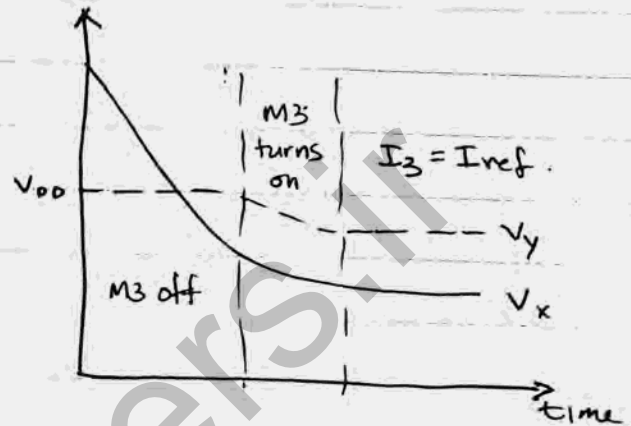 M3
turns
on
I3 = Iref.
VDD
Vy
M3 off
Vx
time
ers.ir